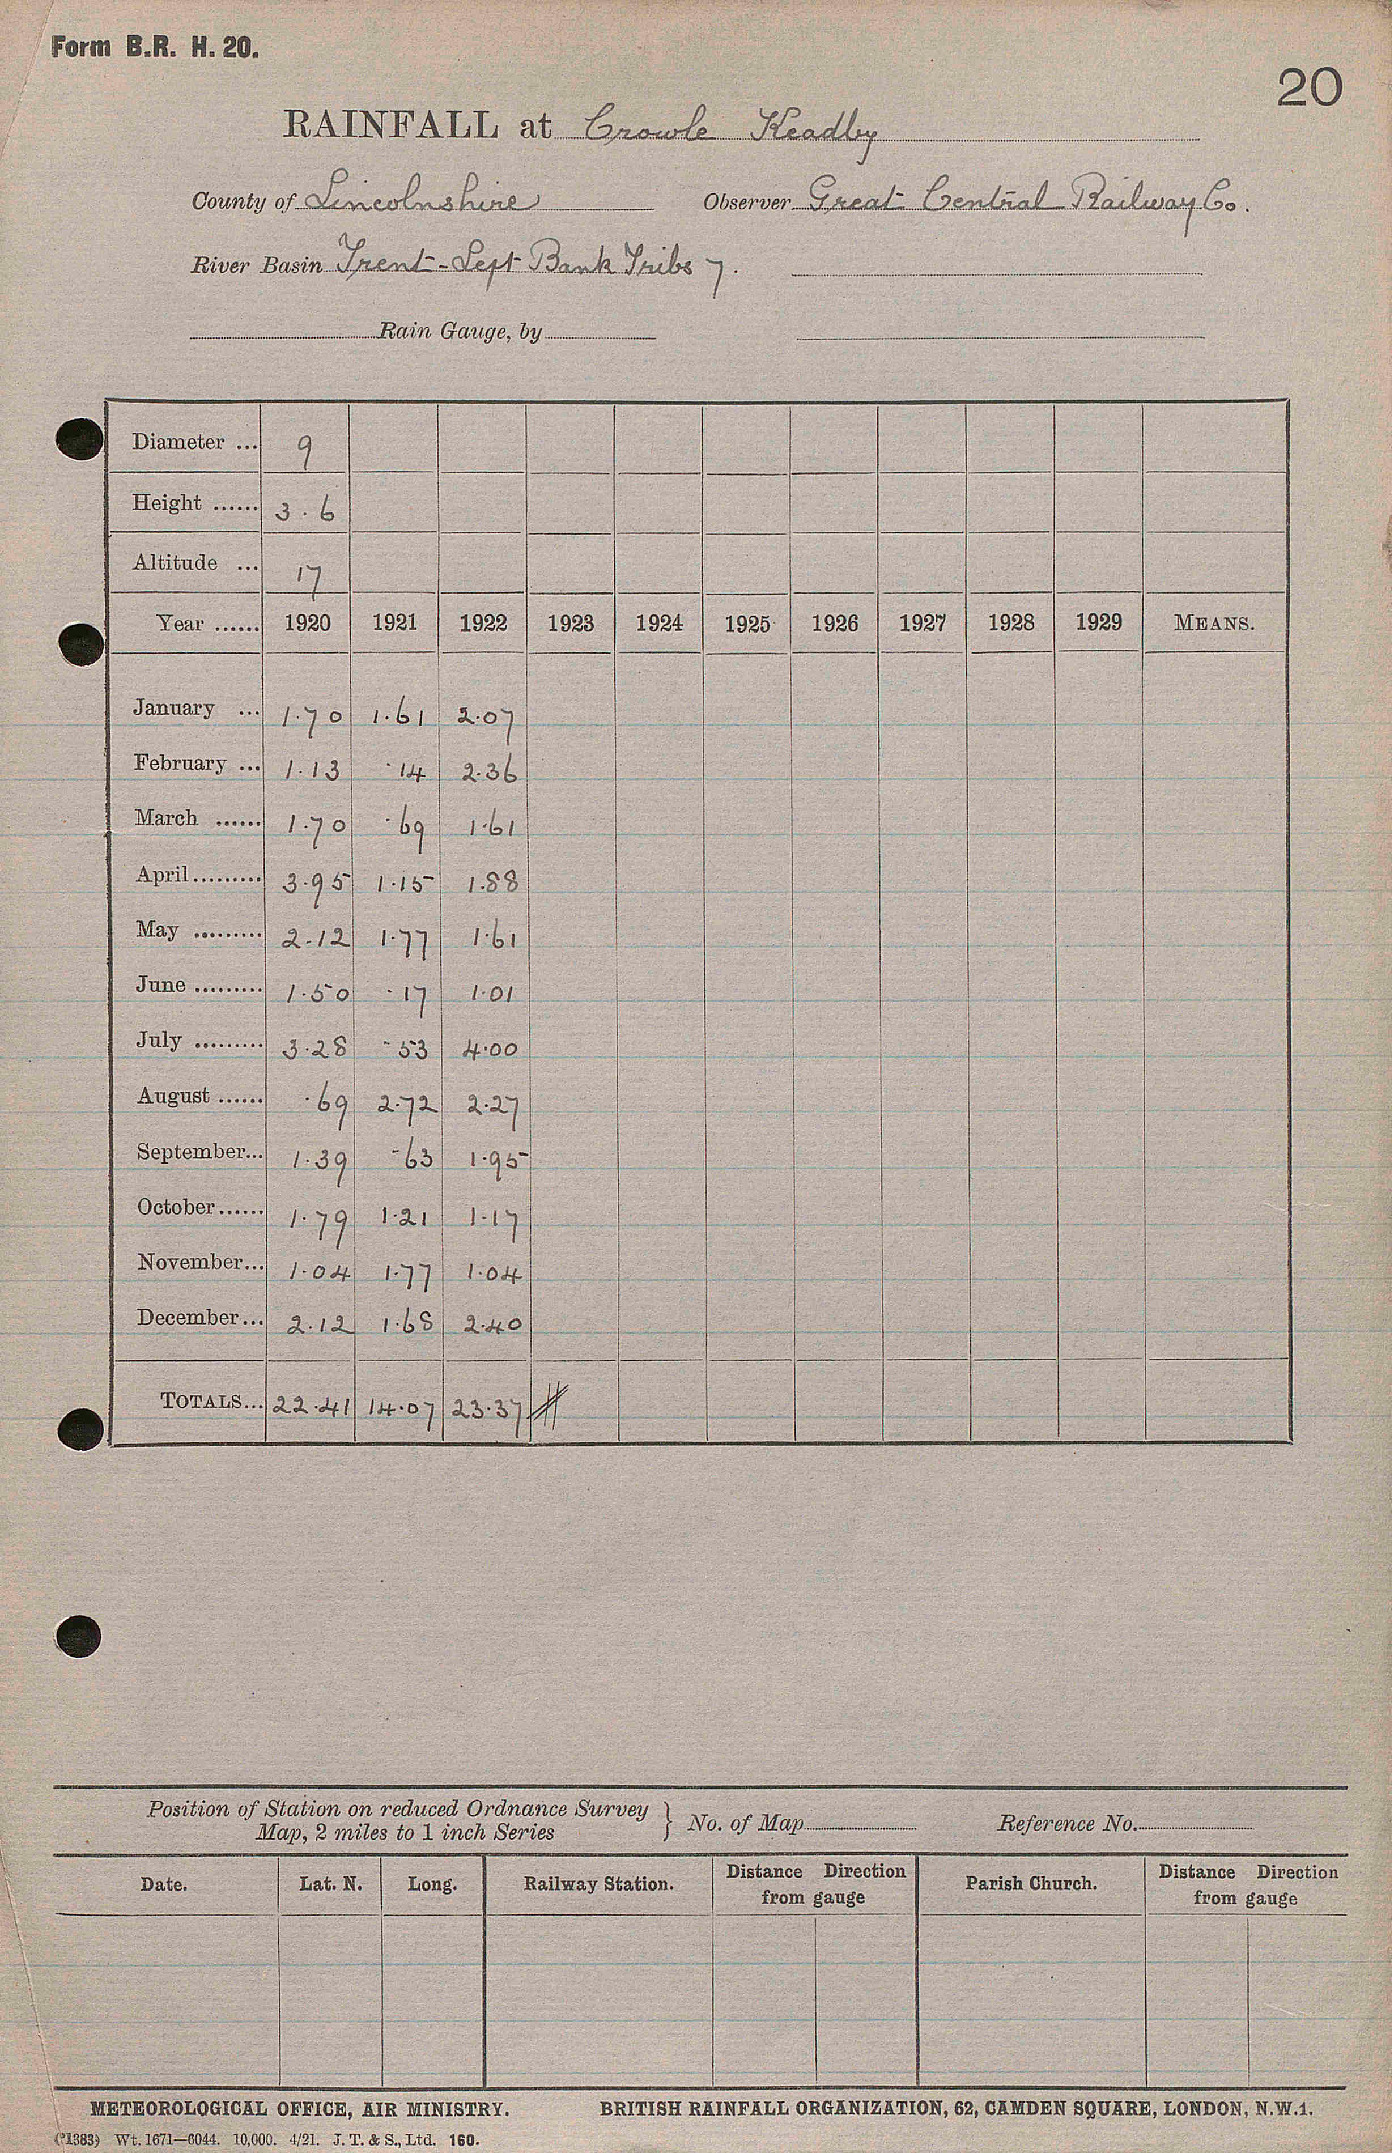 Form B.R. H. 20.
20
RAINFALL at Crowle Keadby
County of Lincolnshire Observer Great Central Railway Co.
River Basin Trent - Left Bank Tribs 7.
Rain Gauge, by
Diameter ... 9
Height ...... 3 . 6
Altitude ... 17
Year ...... 1920 1921 1922 1923 1924 1925 1926 1927 1928 1929 MEANS.
January ... 1.70 1.61 2.07
February ... 1.13 .14 2.36
March ...... 1.70 .69 1.61
April ......... 3.95 1.15 1.88
May ......... 2.12 1.77 1.61
June ......... 1.50 .17 1.01
July ......... 3.28 .53 4.00
August ...... .69 2.72 2.27
September... 1.39 .63 1.95
October...... 1.79 1.21 1.17
November... 1.04 1.77 1.04
December... 2.12 1.68 2.40
TOTALS... 22.41 14.07 23.37
Position of Station on reduced Ordnance Survey
Map, 2 miles to 1 inch Series } No. of Map Reference No.
Date. Lat. N. Long. Railway Station. Distance Direction from gauge Parish Church. Distance Direction from gauge
METEOROLOGICAL OFFICE, AIR MINISTRY. BRITISH RAINFALL ORGANIZATION, 62, CAMDEN SQUARE, LONDON, N.W.1.
(*1383) Wt. 1671—6044. 10,000. 4/21. J. T. & S., Ltd. 160.